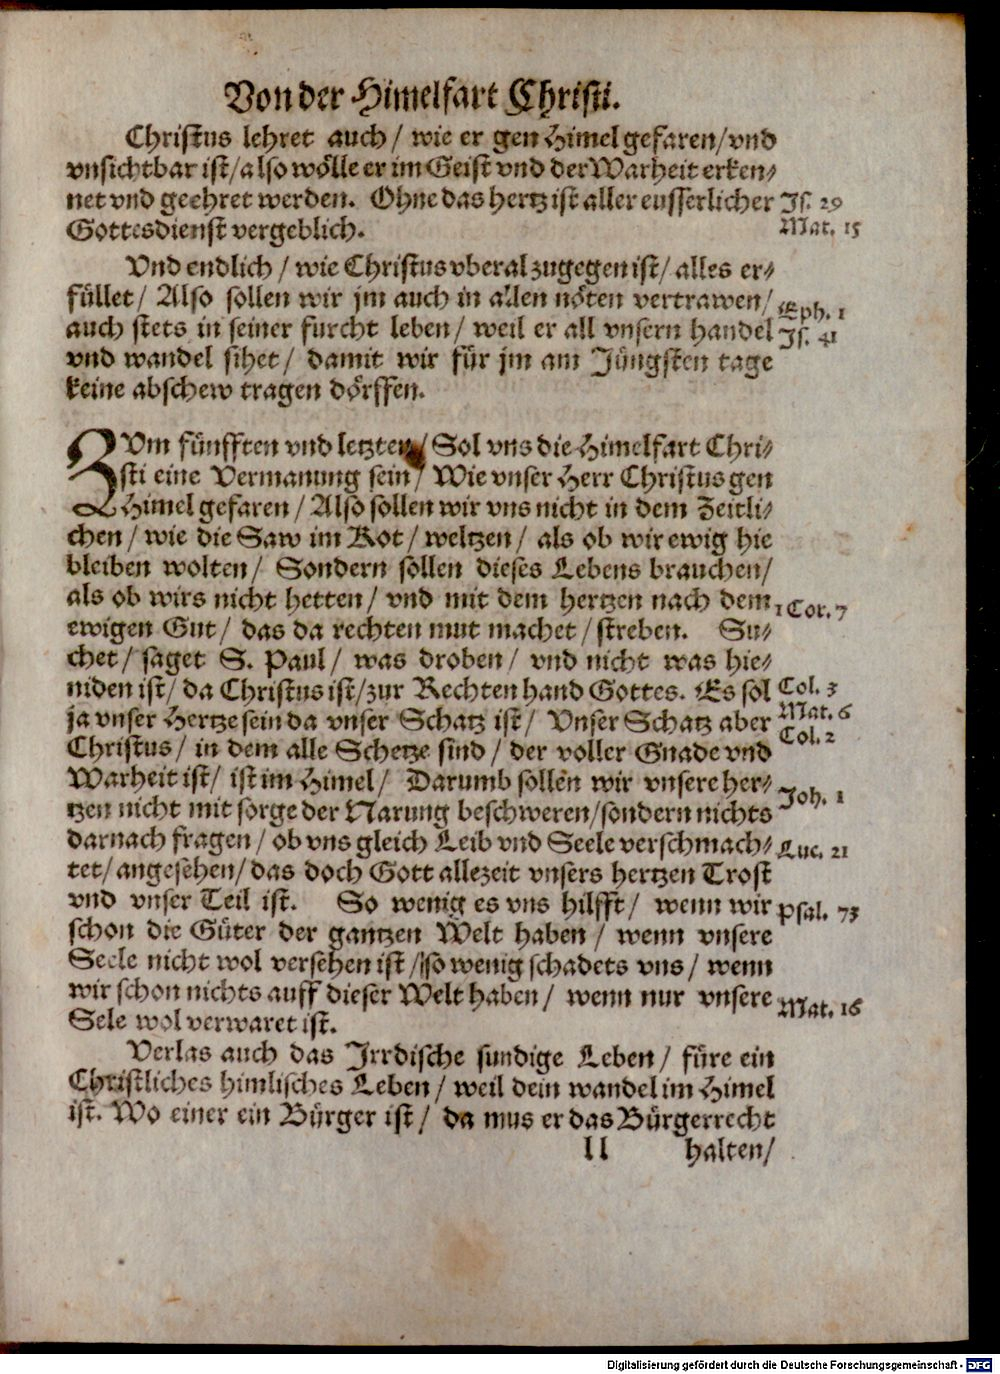 Von der Himelfart Christi.
Christus lehret auch / wie er gen Himel gefaren / vnd
vnsichtbar ist / also wölle er im Geist vnd der Warheit erken⸗
net vnd geehret werden. Ohne das hertz ist aller eusserlicher Js. 29
Gottesdienst vergeblich. Mat. 15
Vnd endlich / wie Christus vberal zugegen ist / alles er⸗
füllet / Also sollen wir jm auch in allen nöten vertrawen / Eph. 1
auch stets in seiner furcht leben / weil er all vnsern handel Js. 41
vnd wandel sihet / damit wir für jm am Jüngsten tage
keine abschew tragen dörffen.
ZVm fünfften vnd letzten / Sol vns die Himelfart Chri⸗
sti eine Vermanung sein / Wie vnser Herr Christus gen
Himel gefaren / Also sollen wir vns nicht in dem Zeitli⸗
chen / wie die Saw im Kot / weltzen / als ob wir ewig hie
bleiben wolten / Sondern sollen dieses Lebens brauchen /
als ob wirs nicht hetten / vnd mit dem hertzen nach dem 1 Cor. 7
ewigen Gut / das da rechten mut machet / streben. Su⸗
chet / saget S. Paul / was droben / vnd nicht was hie⸗
niden ist / da Christus ist / zur Rechten hand Gottes. Es sol Col. 3
ja vnser Hertze sein da vnser Schatz ist / Vnser Schatz aber Mat. 6
Christus / in dem alle Schetze sind / der voller Gnade vnd Col. 2
Warheit ist / ist im Himel / Darumb sollen wir vnsere her⸗
tzen nicht mit sorge der Narung beschweren / sondern nichts Joh. 1
darnach fragen / ob vns gleich Leib vnd Seele verschmach⸗ Luc. 21
tet / angesehen / das doch Gott allezeit vnsers hertzen Trost
vnd vnser Teil ist. So wenig es vns hilfft / wenn wir Psal. 73
schon die Güter der gantzen Welt haben / wenn vnsere
Seele nicht wol versehen ist / so wenig schadets vns / wenn
wir schon nichts auff dieser Welt haben / wenn nur vnsere Mat. 16
Sele wol verwaret ist.
Verlas auch das Jrrdische sundige Leben / füre ein
Christliches himlisches Leben / weil dein wandel im Himel
ist. Wo einer ein Bürger ist / da mus er das Bürgerrecht
Ll halten /
Digitalisierung gefördert durch die Deutsche Forschungsgemeinschaft - DFG